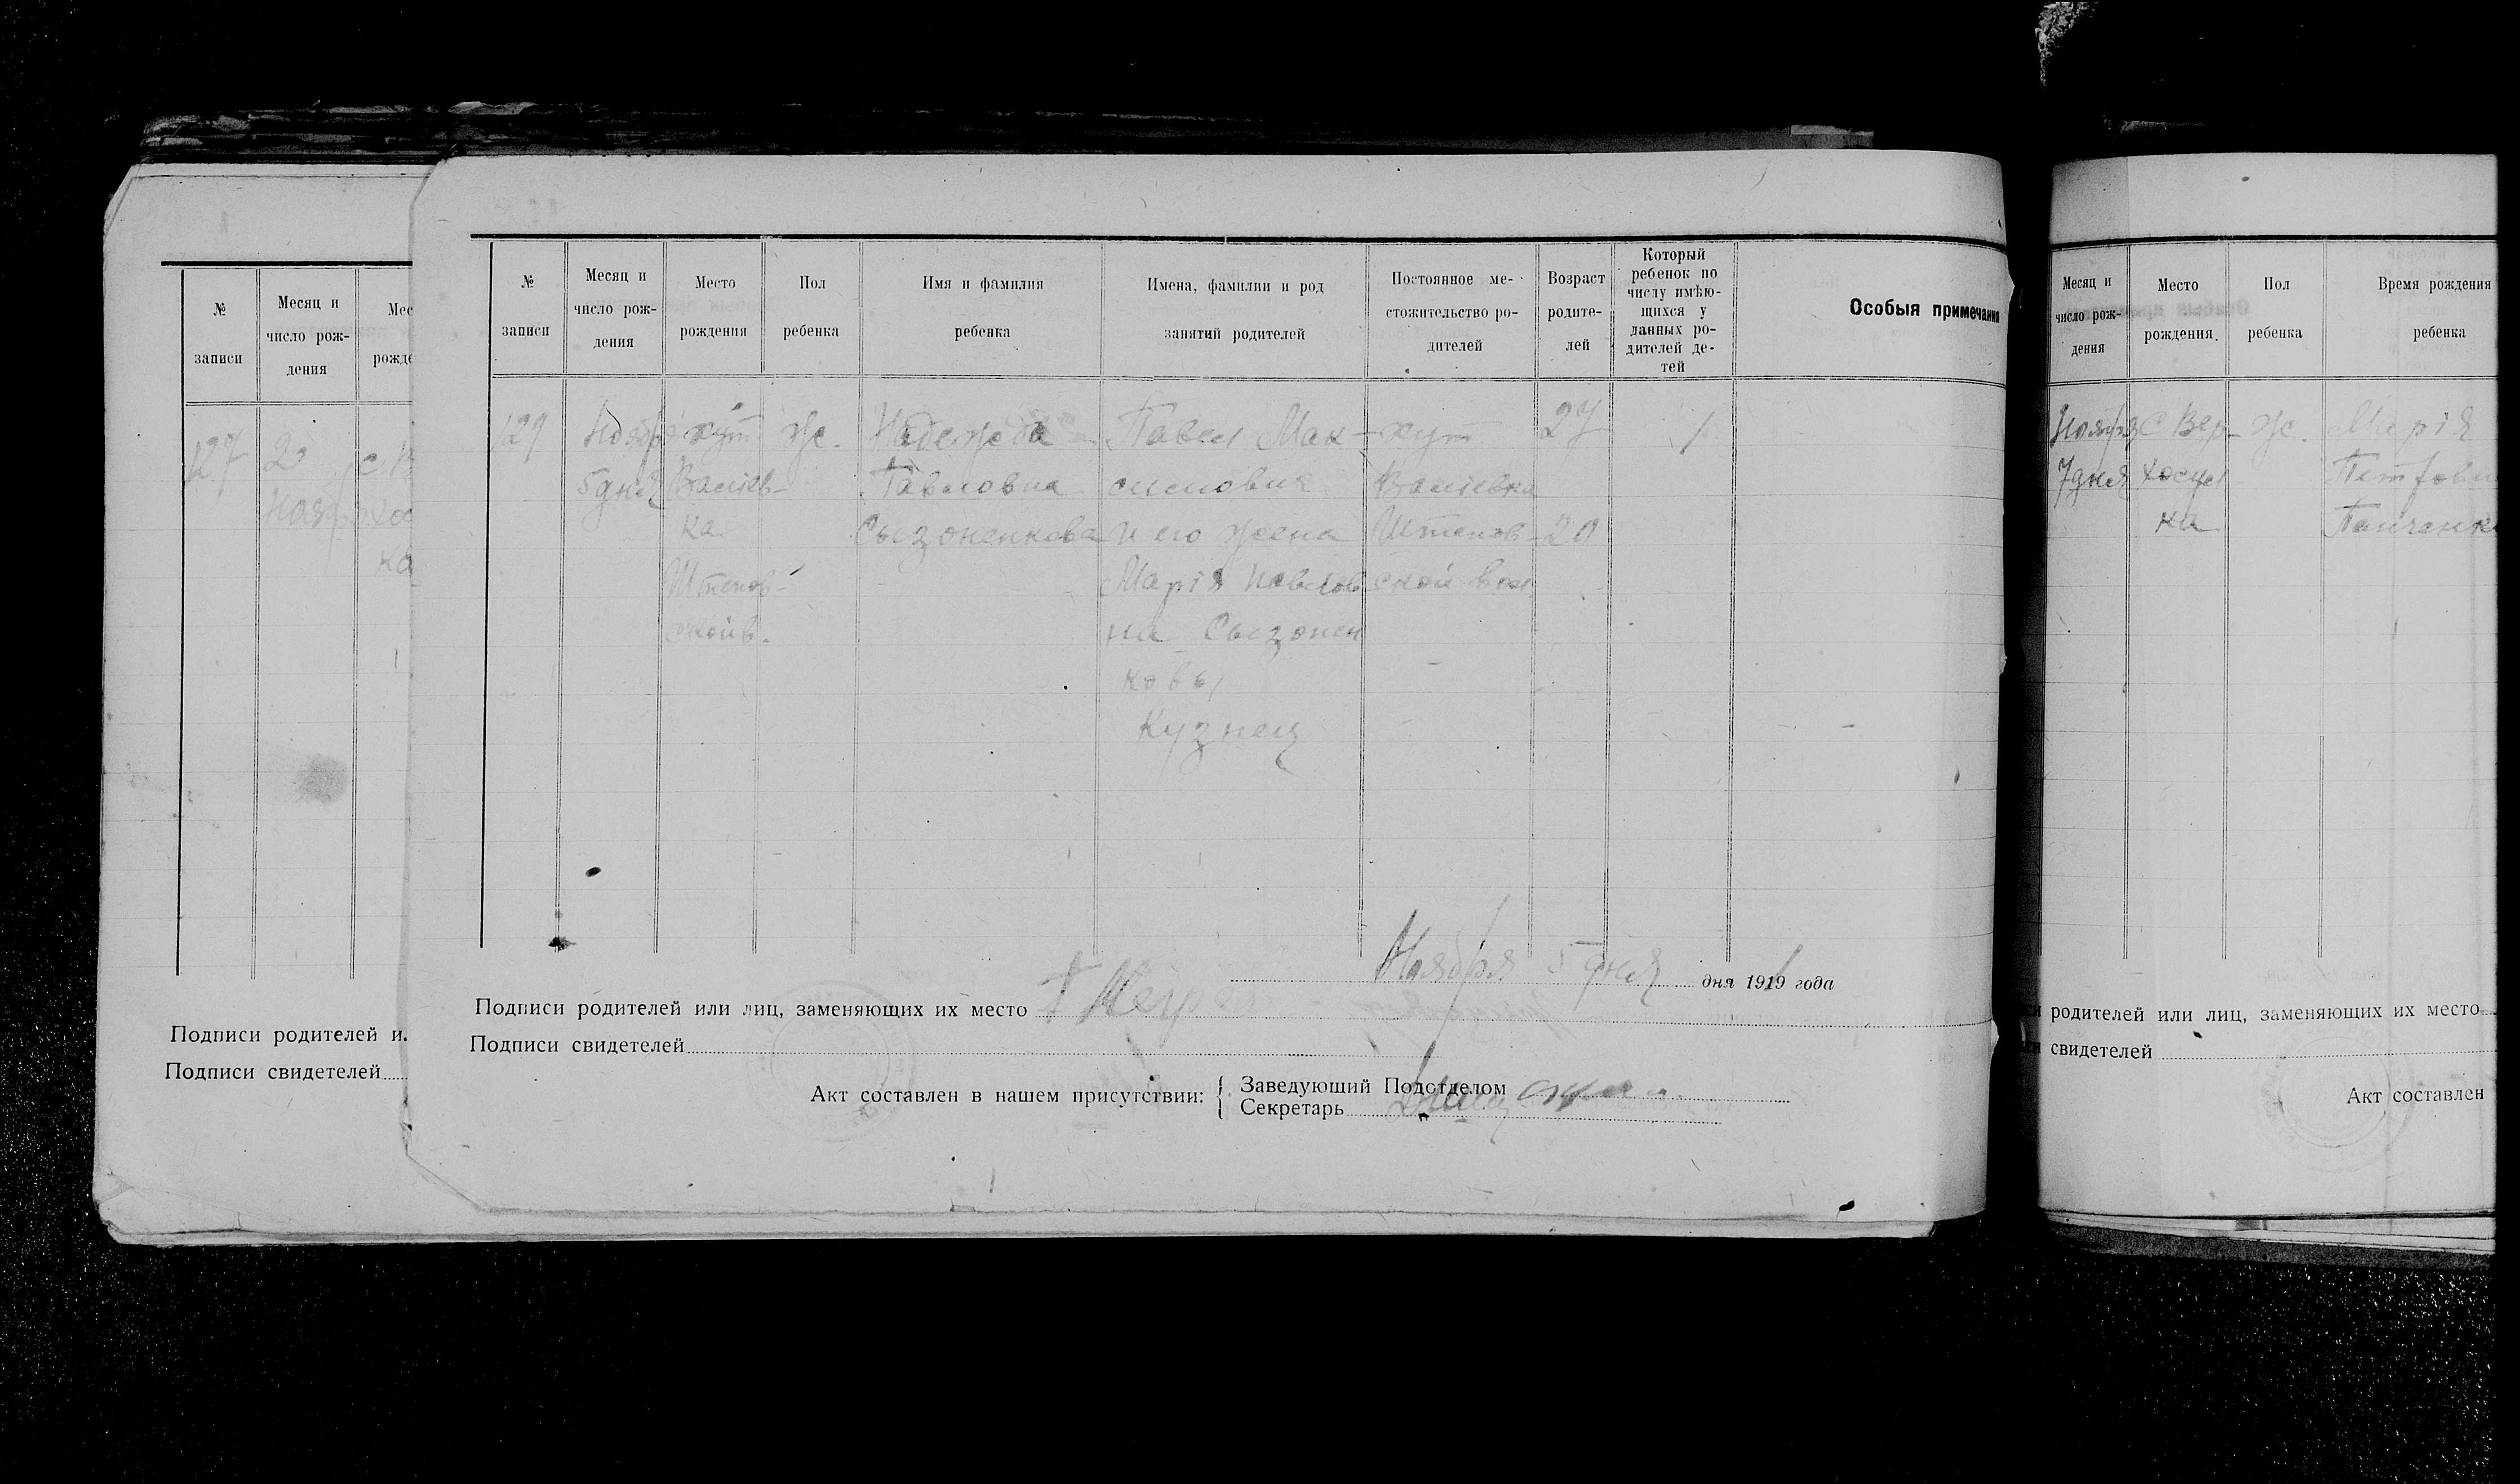 № записи
Месяц и число рождения
Мес
рожде
127
20
Ноября
с. В
хос
ка
Подписи родителей и
Подписи свидетелей
№ записи
Месяц и число рождения
Место рождения
Пол ребенка
Имя и фамилия ребенка
Имена, фамилии и род занятий родителей
Постоянное местожительство родителей
Возраст родителей
Который ребенок по числу имѣющихся у данных родителей детей
Особыя примечания
129
Ноября
5 дня
хут
Васіев-
ка
Штепов-
ской в.
Же.
Надежда
Павловна
Сызоненкова
Павел Мак-
симович
и его жена
Марія Павлов
на Сызонен
ковы
Кузнец
хут
Васіевка
Штепов-
ской вол.
27
20
1
Ноября 5 дня дня 1919 года
Подписи родителей или лиц, заменяющих их место
Подписи свидетелей
Акт составлен в нашем присутствии:
Заведующий Подотделом
Секретарь
Месяц и число рождения
Место рождения
Пол ребенка
Время рождения ребенка
Ноября
7 дня
С Вер-
хосул
ка
Же.
Марія
Петровн
Панченк
родителей или лиц, заменяющих их место
свидетелей
Акт составлен